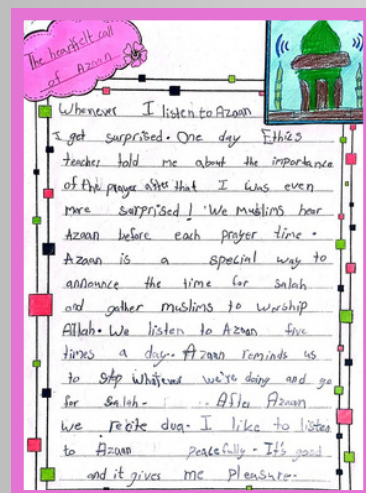 The heartfelt call
of Azaan
Whenever I listen to Azaan
I get surprised. One day Ethics
teacher told me about the importance
of the prayer after that I was even
more surprised! We muslims hear
Azaan before each prayer time.
Azaan is a special way to
announce the time for salah
and gather muslims to worship
Allah. We listen to Azaan five
times a day. Azaan reminds us
to stop whatever we're doing and go
for salah. After Azaan
we recite dua. I like to listen
to Azaan peacefully. It's good
and it gives me pleasure.